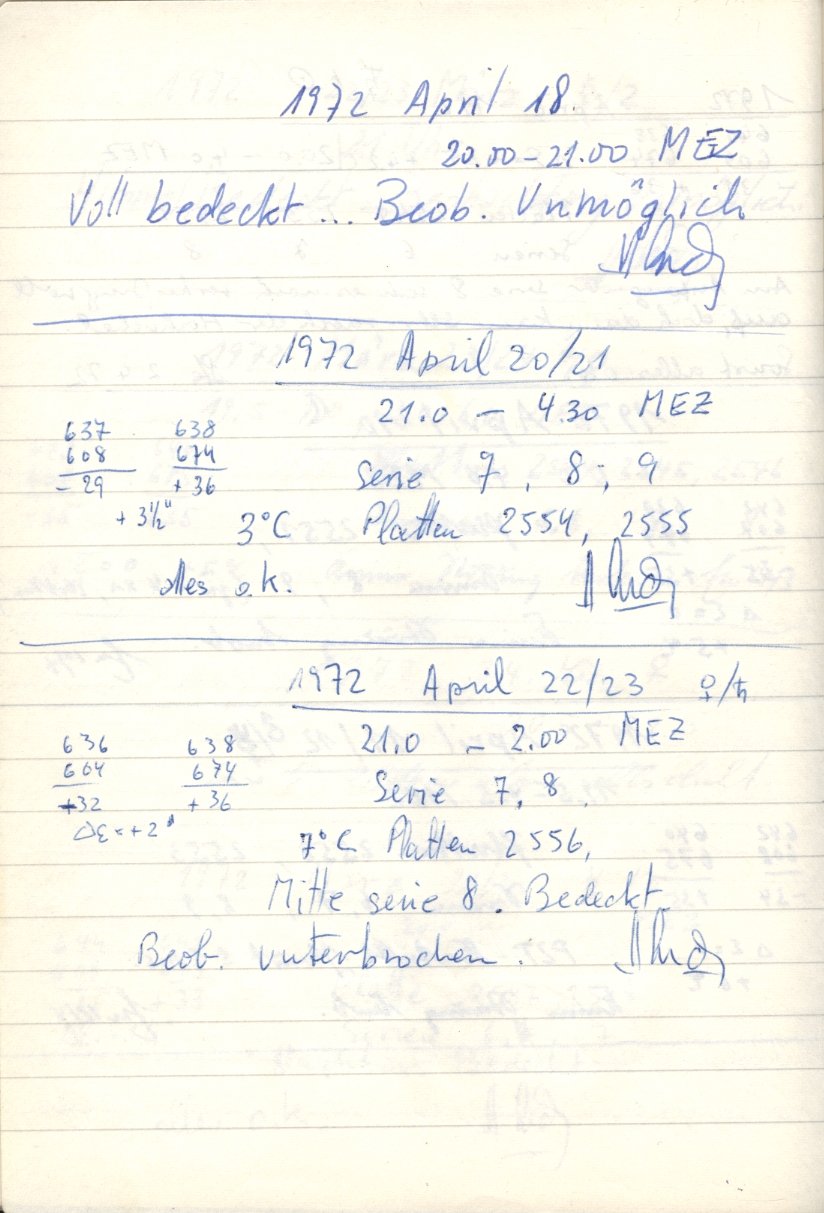 1972 April 18.
20.00 - 21.00 MEZ
Voll bedeckt ... Beob. Unmöglich
1972 April 20/21
21.0 - 4.30 MEZ
637 638
608 674 Serie 7, 8, 9
- 29 + 36
+ 3½" 3°C Platten 2554, 2555
alles o.k.
1972 April 22/23 ♀/♄
636 638 21.0 - 2.00 MEZ
604 674 Serie 7, 8,
+32 + 36
Δε = + 2" 7°C Platten 2556,
Mitte serie 8. Bedeckt.
Beob. unterbrochen.